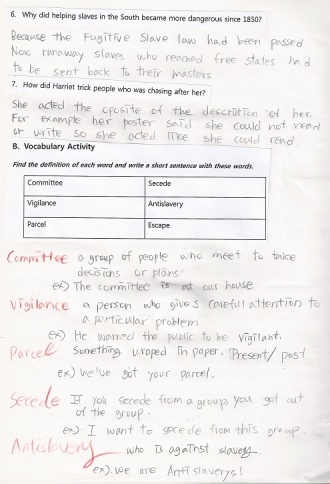 6. Why did helping slaves in the South became more dangerous since 1850?
Because the Fugitive Slave law had been passed
Now runaway slaves who reached free states had
to be sent back to their masters
7. How did Harriet trick people who was chasing after her?
She acted the oposite of the description of her.
For example her poster said she could not read
or write so she acted like she could read.
B. Vocabulary Activity
Find the definition of each word and write a short sentence with these words.
Committee Secede
Vigilance Antislavery
Parcel Escape
Committee a group of people who meet to take
decisions or plans
ex) The committee is at our house
Vigilance a person who gives careful attention to
a particular problem
ex) He warned the public to be vigilant.
Parcel Something wraped in paper. Present/ post
ex) We've got your parcel.
Secede If you secede from a group, you get out
of the group.
ex) I want to secede from this group.
Antislavery who is against slavery.
ex). We are Antislaverys!